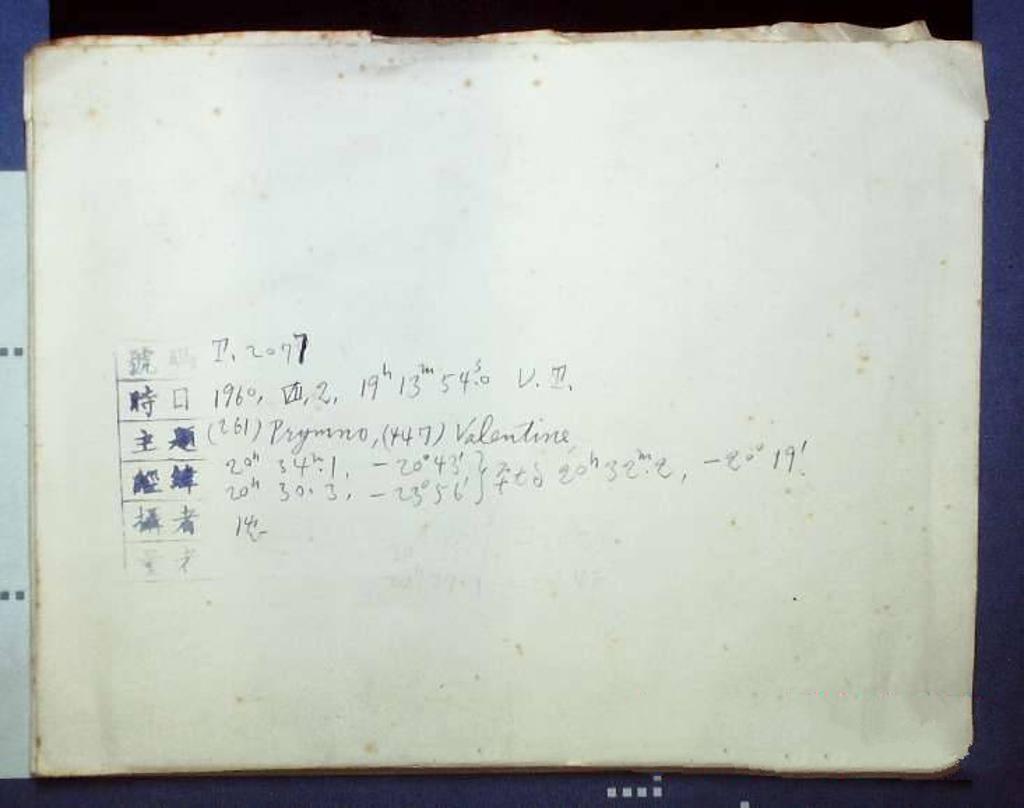 號碼 T. 2077
時日 1960, Ⅷ, 2, 19ʰ 13ᵐ 54ˢ.0 U.T.
主題 (261) Prymno, (447) Valentine
經緯 20ʰ 34ᵐ.1, -20°43′
20ʰ 30.3, -23°56′ } 20ʰ 32ᵐ.2, -20° 19′.
攝者
量者